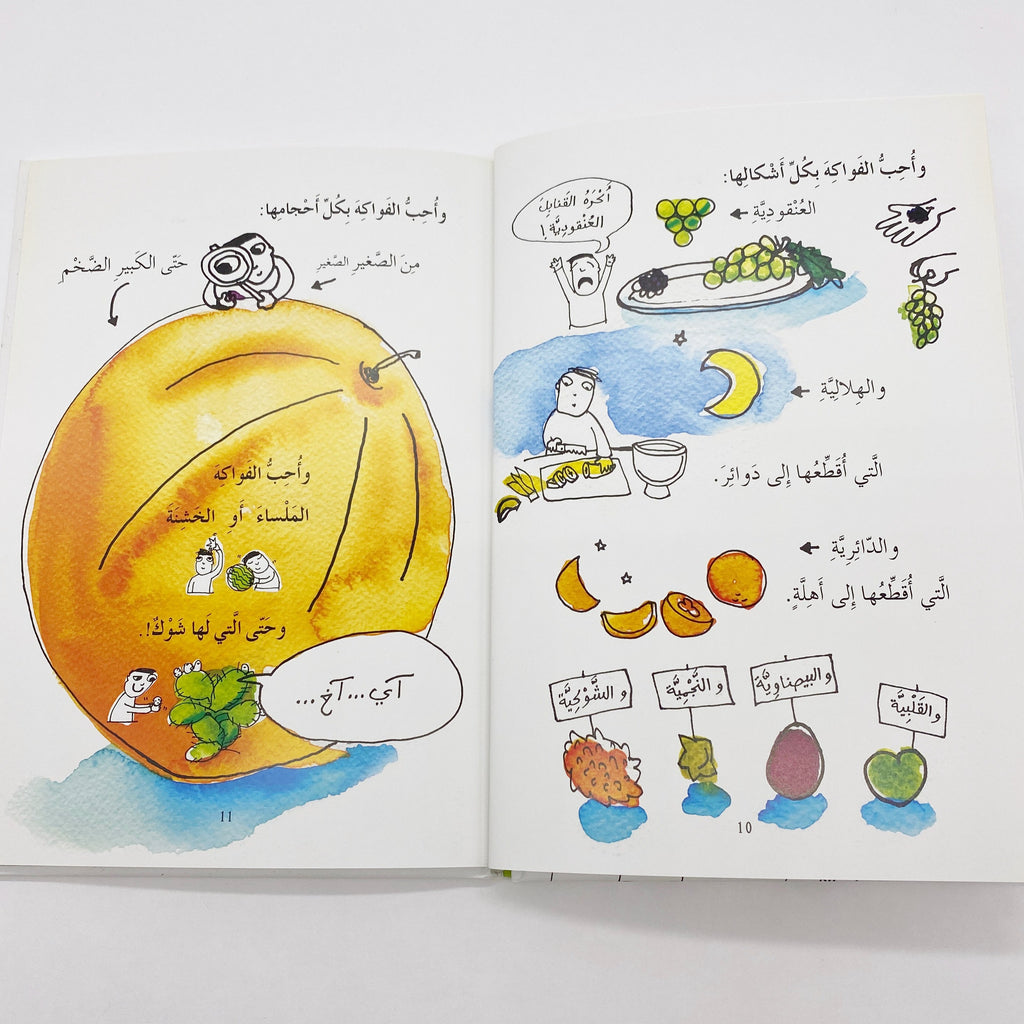 وأُحِبُّ الفَواكِهَ بِكُلِّ أَشْكالِها:
العُنْقودِيَّةِ
أَكْرَهُ القَنابِلَ
العُنْقودِيَّةَ!
والهِلالِيَّةِ
الَّتي أُقَطِّعُها إِلى دَوائِرَ.
والدّائِرِيَّةِ
الَّتي أُقَطِّعُها إِلى أَهِلَّةٍ.
والقَلْبِيَّة
والبيضاوِيَّة
والنَّجْمِيَّة
والشَّوْكِيَّة
10
وأُحِبُّ الفَواكِهَ بِكُلِّ أَحْجامِها:
مِنَ الصَّغيرِ الصَّغيرِ
حَتّى الكَبيرِ الضَّخْمِ
وأُحِبُّ الفَواكِهَ
المَلْساءَ أَوِ الخَشِنَةَ
وحَتّى الَّتي لَها شَوْكٌ!.
آي... آخ...
11